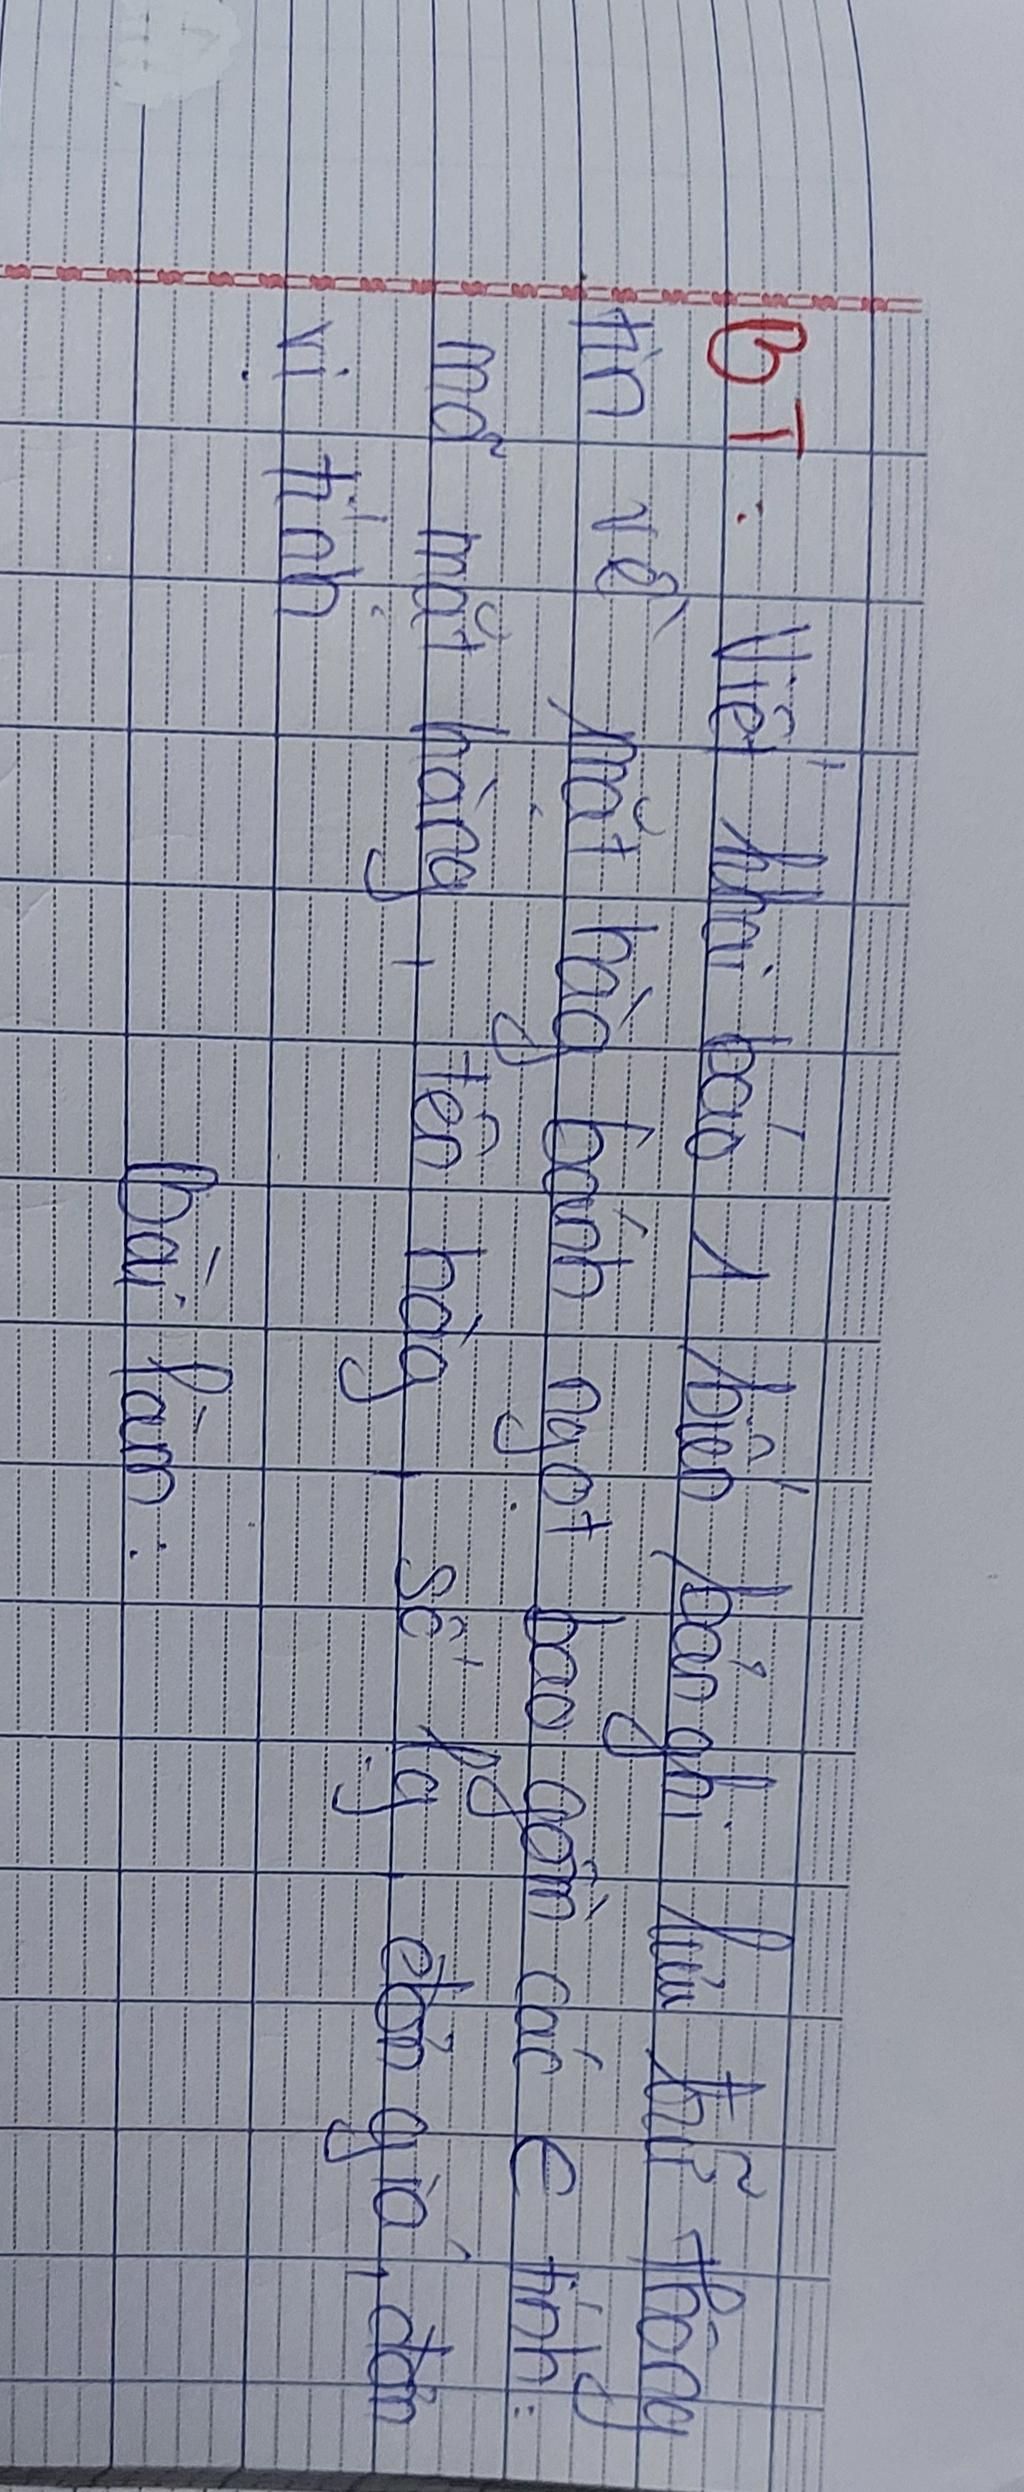 BT : Viết khai báo 1 biến bản ghi lưu trữ thông
tin về mặt hàg bánh ngọt bao gồm các € tính :
mã mặt hàng, tên hàg, số lg, đơn giá, đơn
vị tính
Bài làm :